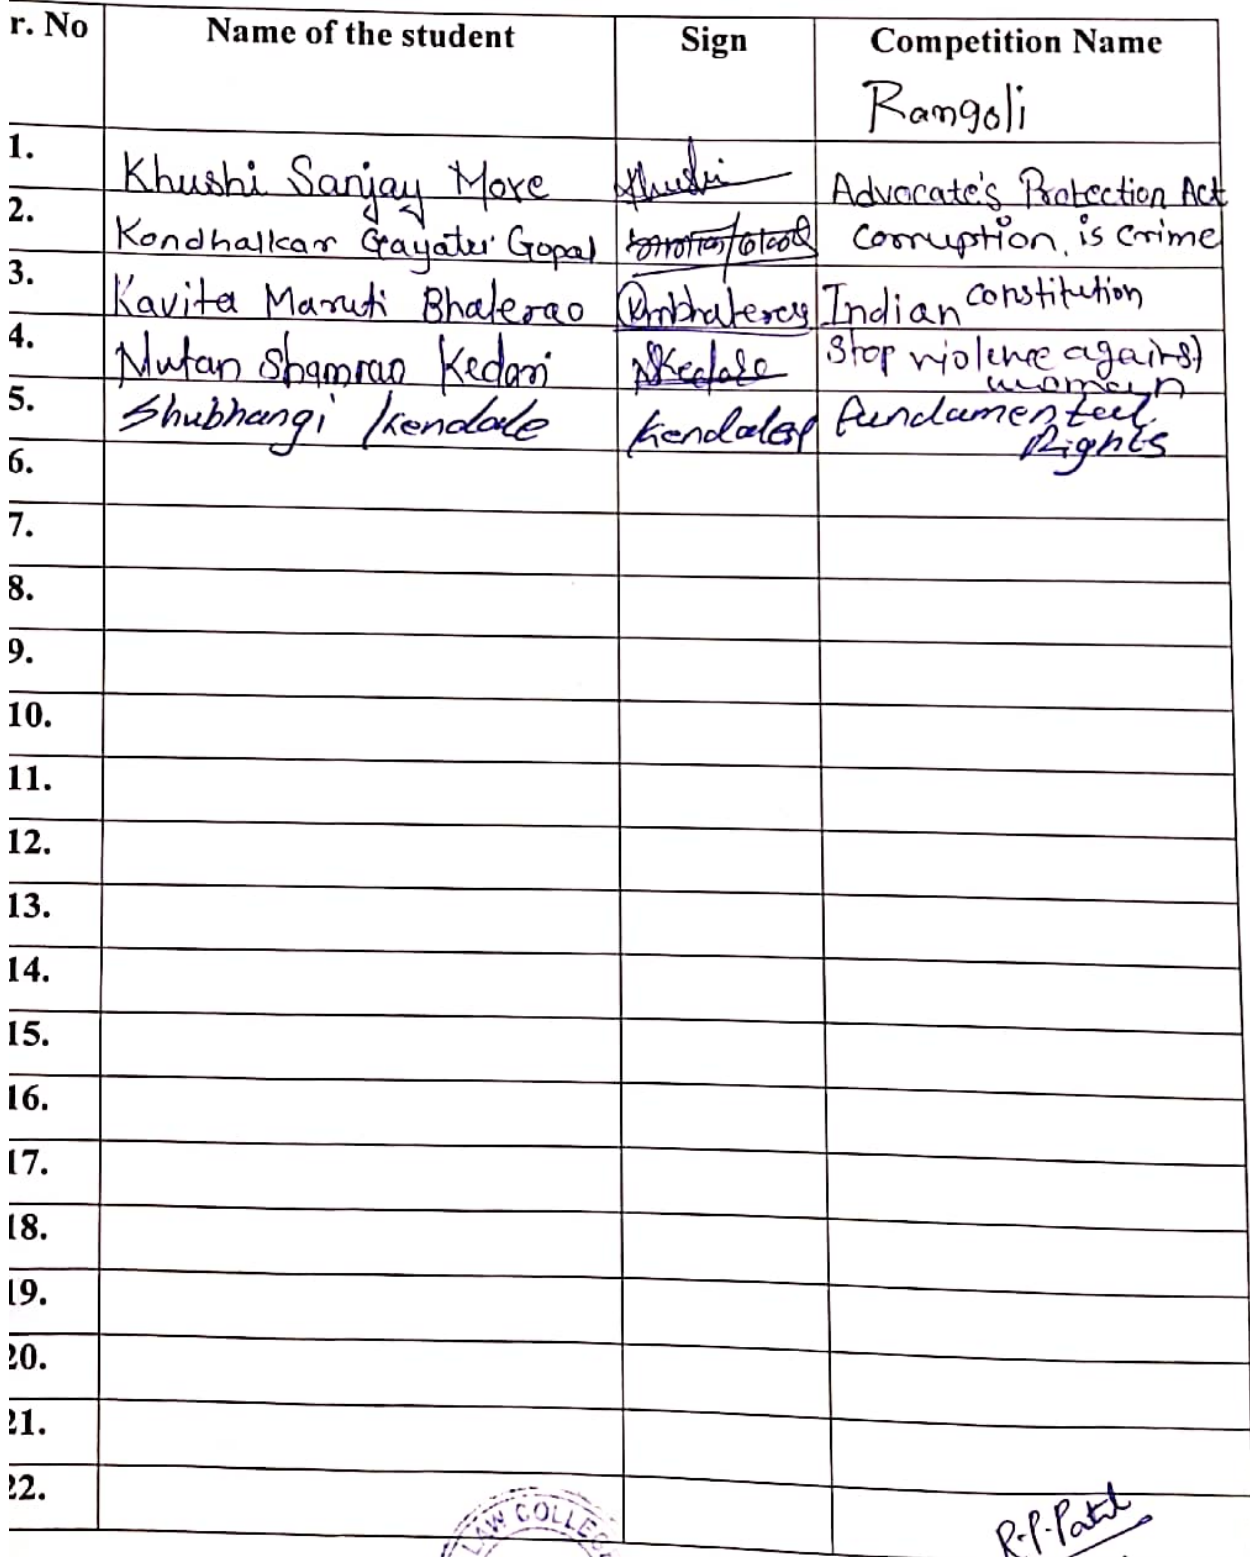 r. No Name of the student Sign Competition Name
Rangoli
1. Khushi Sanjay More Khushi Advocate's Protection Act
2. Kondhalkar Gayatri Gopal corruption is crime
3. Kavita Maruti Bhalerao Kmbhalerao Indian constitution
4. Nutan Shamrao Kedari NKedare Stop violence against
women
5. Shubhangi Kendale Kendalesp fundamental
Rights
6.
7.
8.
9.
10.
11.
12.
13.
14.
15.
16.
17.
18.
19.
20.
21.
22.
LAW COLLEGE
R.P.Patil